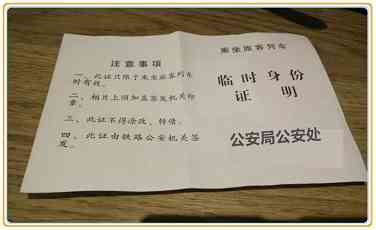 注意事项
一、此证只限于乘坐旅客列车
时有效。
二、相片上须加盖签发机关印
章。
三、此证不得涂改、转借。
四、此证由铁路公安机关签
发。
乘坐旅客列车
临时身份
证 明
公安局公安处